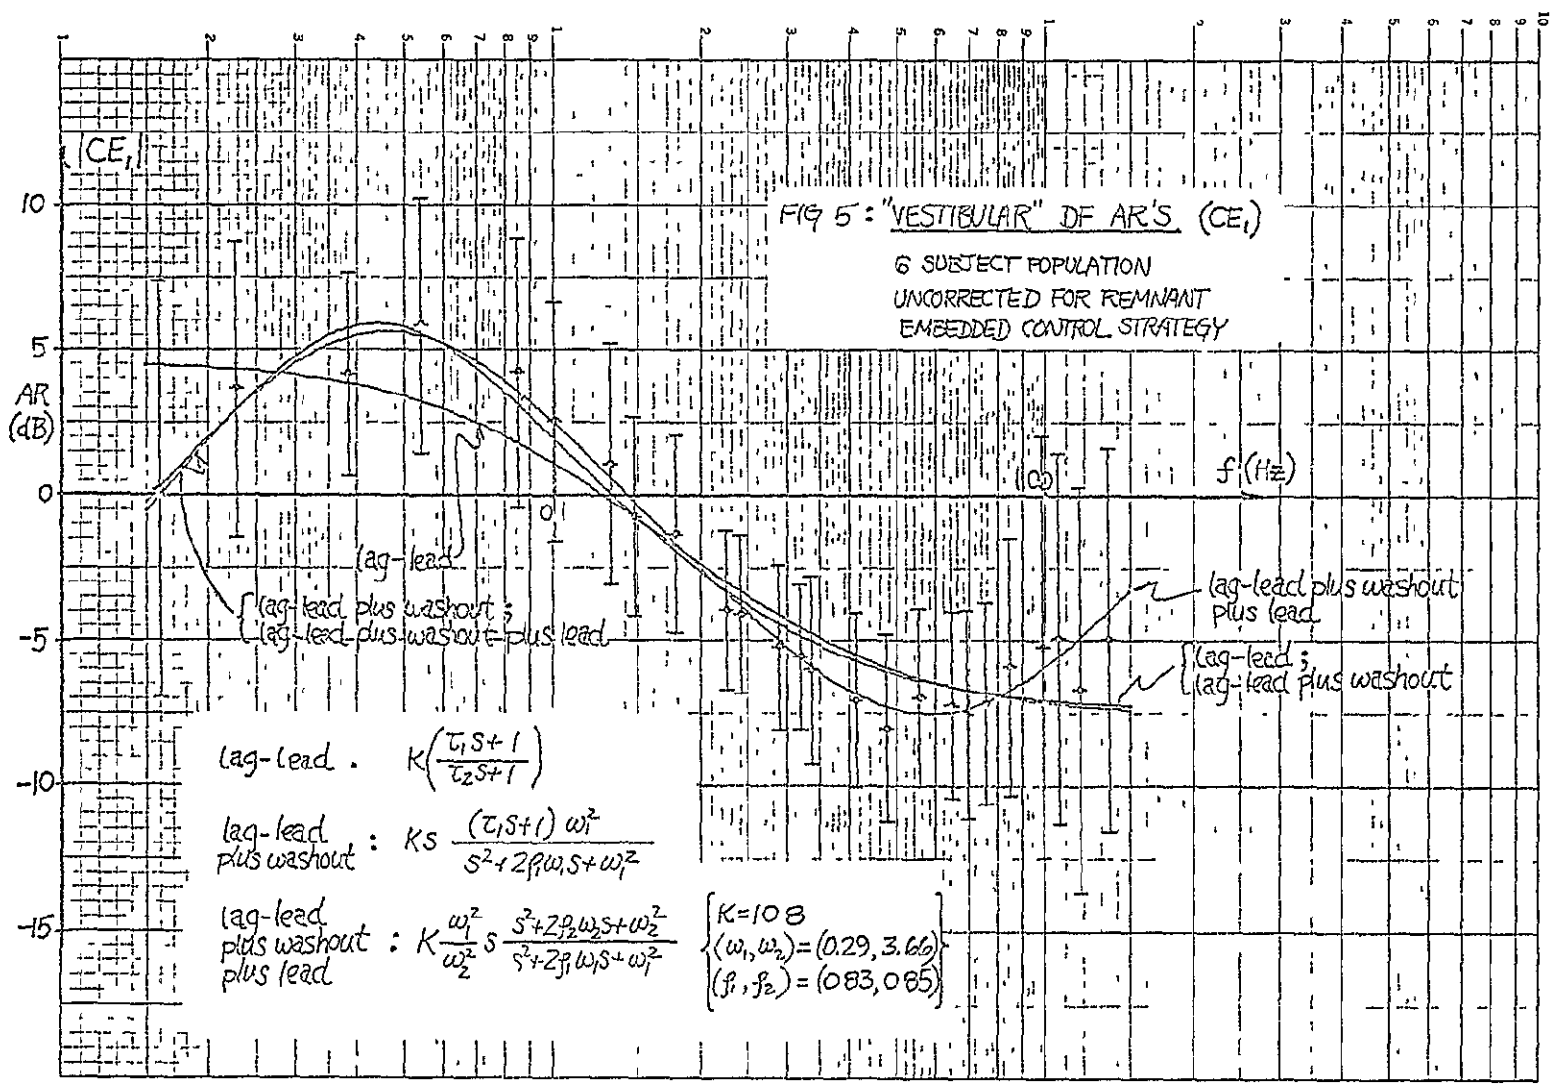 1 2 3 4 5 6 7 8 9 1 2 3 4 5 6 7 8 9 1 2 3 4 5 6 7 8 9 10
|CE₁|
10
5
AR
(dB)
0
-5
-10
-15
FIG 5: "VESTIBULAR" DF AR'S (CE₁)
6 SUBJECT POPULATION
UNCORRECTED FOR REMNANT
EMBEDDED CONTROL STRATEGY
f (Hz)
0.1
lag-lead
{lag-lead plus washout;
lag-lead plus washout plus lead
lag-lead plus washout
plus lead
{lag-lead;
lag-lead plus washout
lag-lead . K(τ₁s+1 / τ₂s+1)
lag-lead
plus washout : Ks (τ₁s+1) ω₁² / s²+2ρ₁ω₁s+ω₁²
lag-lead
plus washout
plus lead : K ω₁²/ω₂² s s²+2ρ₂ω₂s+ω₂² / s²+2ρ₁ω₁s+ω₁²
{K=108
(ω₁,ω₂)=(0.29, 3.66)
(ρ₁,ρ₂)=(083,085)}